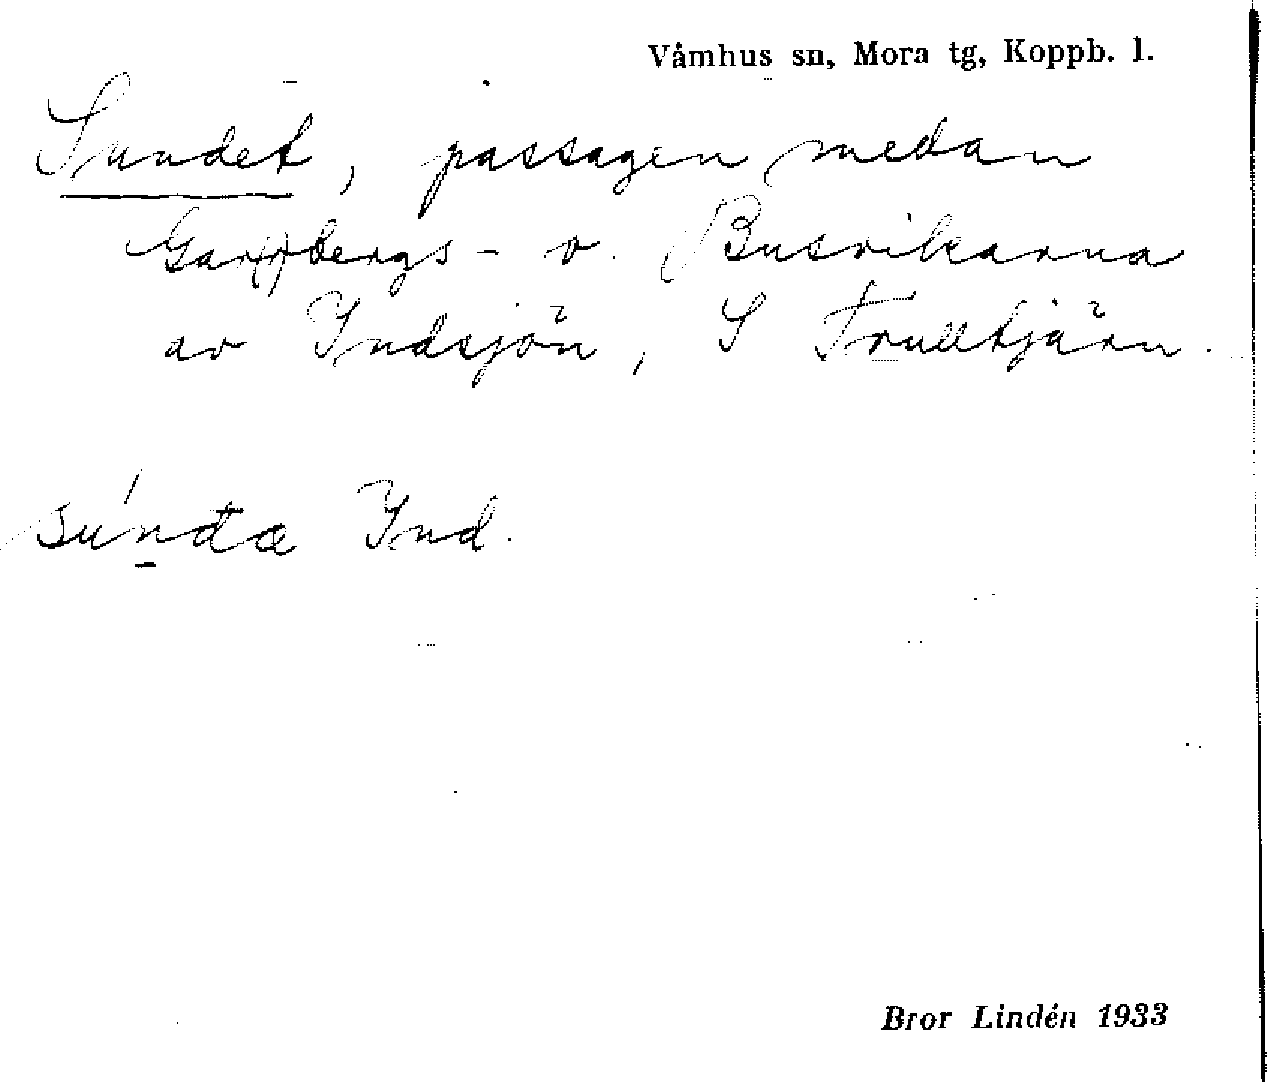 Våmhus sn, Mora tg, Koppb. l.
Sundet, passagen mellan
Gar(p)bergs- o. Busvikarna
av Indsjön, S Trulltjärn.
súndæ Ind.
Bror Lindén 1933